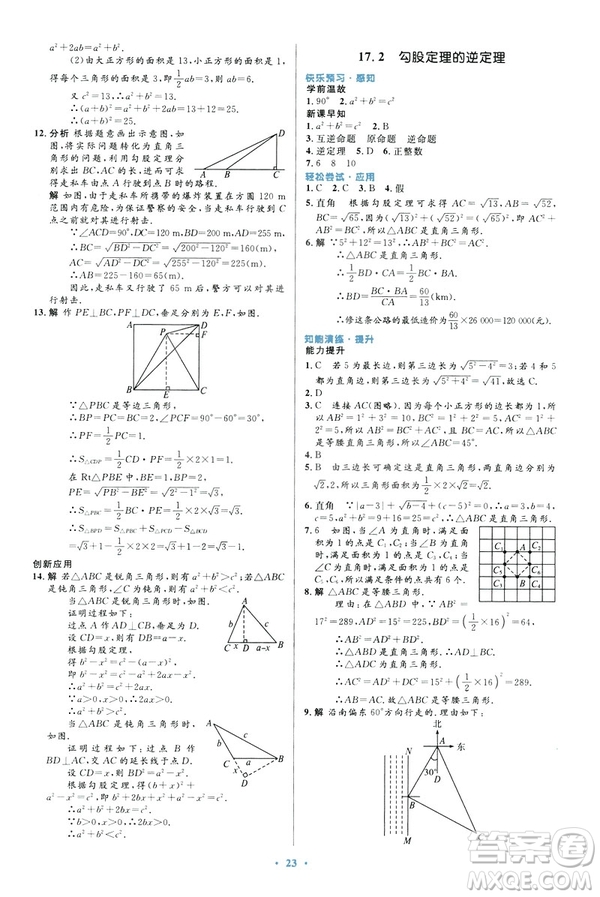 a²+2ab+b²=25.
(2)由大正方形的面积是13,小正方形的面积是1,得每个三角形的面积是\frac{1}{2}ab=\frac{1}{4}×(13-1)=3,
∴(a+b)²=a²+b²+2ab=c²+2ab.
又∵c²=13,
∴(a+b)²=13+12=25.
12.分析 根据题意画出示意图,
将实际问题转化为直角三
角形的问题,利用勾股定理
求出AC的长,进而得出
AB的长.
解 如图,由于走私车所携带的爆炸装置在方圆120 m
的范围内有危险,为保证警察的安全,当走私车行驶到
点B前进行射击,当走私车行驶到
∵∠ACD=90°,CD=120 m,BD=200 m,AD=255 m,
∴BC=√(BD²-DC²)=√(200²-120²)=160(m),
AC=√(AD²-DC²)=√(255²-120²)=225(m).
∴AB=225-160=65(m).
因此,走私车行驶了 65 m 后,警方可以对其进
行射击.
13.解 作PE⊥BC,PF⊥DC,垂足分别为E,F.
A
D
P
F
B
E
C
∵△PBC是等边三角形,
∴BP=PC=BC=2,∠PCF=90°-60°=30°.
∴PF=\frac{1}{2}PC=1.
∴S△CDP=\frac{1}{2}CD·PF=\frac{1}{2}×2×1=1.
在Rt△PBE中,
PE=√(PB²-BE²)=√(2²-1²)=√3,
∴S△PBC=\frac{1}{2}BC·PE=\frac{1}{2}×2×√3=√3.
∴S△BPD=S△PBC+S△PCD-S△BCD
=√3+1-\frac{1}{2}×2×2=√3-1.
创新应用
14.解 若△ABC是锐角三角形,则有a²+b²>c²;若△ABC
是钝角三角形,∠C为钝角,则有a²+b²<c².
当△ABC是锐角三角形时,
证明过程如下:
过点A作AD⊥CB,垂足为D,
设CD=x,则有DB=a-x.
根据勾股定理,得
b²-x²=c²-(a-x)²,
即b²-x²=c²-a²+2ax-x².
∴a²+b²=c²+2ax.
∵a>0,x>0,∴2ax>0.
∴a²+b²>c².
A
b
c
C
D
a-x
B
当△ABC是钝角三角形时,
证明过程如下:过点B作
BD⊥AC,交AC的延长线于点D,
设CD=x,则BD²=a²-x².
根据勾股定理,得
(b+x)²+a²-x²=c²,
即b²+2bx+x²+a²-x²=c².
∴a²+b²+2bx=c².
∵b>0,x>0,
∴2bx>0.∴a²+b²<c².
A
c
b
a
C
B
D
17.2 勾股定理的逆定理
快乐预习·感知
学前温故
1.90° 2.a²+b²=c²
新课早知
1.a²+b²=c² 2.B
3.互逆命题 原命题 逆命题
4.逆定理 5.D 6.正整数
7.6 8 10
轻松尝试·应用
1.C 2.C 3.B 4.假
5.直角 ∵根据勾股定理可求得AC=√13,AB=√52,
BC=√65,∴(√13)²+(√52)²=(√65)²,即AC²+AB²
=BC².∴△ABC是直角三角形.
6.解 ∵5²+12²=13²,
∴△ABC是直角三角形.
∴\frac{1}{2}BC·BA=\frac{1}{2}CA·BD.
∴BD=\frac{BC·BA}{CA}=\frac{60}{13}(km).
∴修这条公路的费用为\frac{60}{13}×26 000=120 000(元).
知能演练·提升
能力提升
1.C 若5为最长边,则第三边长为√(5²-4²)=3;若4和5
都是较短边,则第三边长为√(5²+4²)=√41.故选C.
2.D
3.C 连接AC(图略).根据每个小正方形的边长都
是1可得,AC²=1²+2²=5,BC²=1²+2²=5,AB²=
1²+3²=10.∵5+5=10,∴AC²+BC²=AB².
∴△ABC是等腰直角三角形.∴∠ABC=45°.
4.B
5.B 由三边长可判断该三角形为直角三角形,所以三角
形的面积为\frac{1}{2}×5×12=30.
6.直角 ∵|a-3|+√(b-4)+(c-5)²=0,∴a=3,b=4,
c=5.∵a²+b²=9+16=25=c²,∴△ABC是直角三角形.
7.6 如图,当∠A为直角时,满足面
积为1的点是C₁,C₂;当∠B为直角
时,满足面积为1的点是C₃,C₄;当
∠C为直角时,满足面积为1的点是
C₅,C₆.所以满足条件的点共有6个.
A
B
8.解 △ABC是等腰三角形.
理由:在△ABD中,∵AB²=
17²=289,AD²+BD²=15²+(\frac{1}{2}×16)²=289,
∴AB²=AD²+BD².
∴△ABD是直角三角形,且∠ADB=90°.
∴△ADC是直角三角形.
∴AC²=AD²+DC²=15²+(\frac{1}{2}×16)²=289.
∴AC=17=AB.
∴△ABC是等腰三角形.
9.解 沿南偏东60°方向行走的.理由如下:
北
A
东
30°
D
B
N
M
C
23
作业帮
ZUOYEBANG.COM